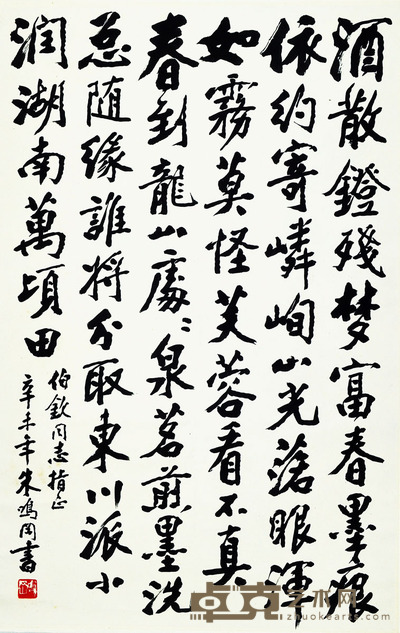 酒散鐙殘梦富春墨痕
依约寄嶙峋山光落眼渾
如霧莫怪芙蓉看不真
春到龍山處〻泉茗煎墨洗
总随缘誰将分取東川派小
润湖南萬頃田
伯欽同志指正
辛未年朱鸣冈書
卓克艺术网
zhuokearts.com